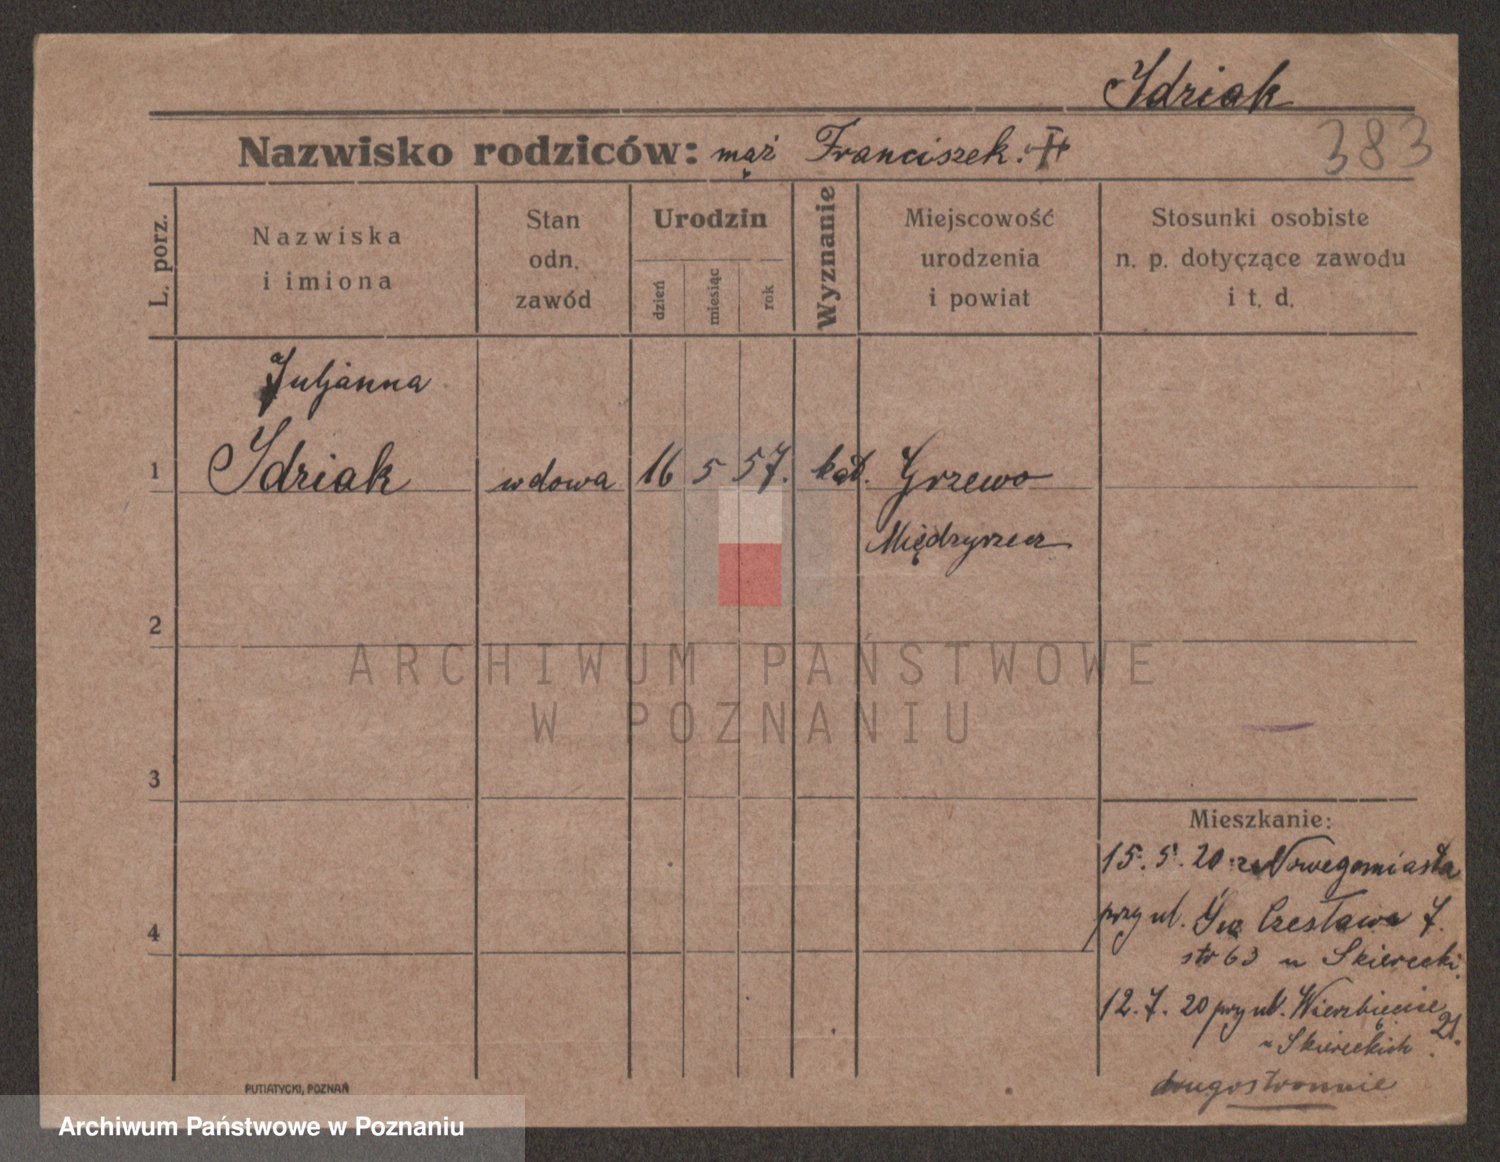 Idriak
Nazwisko rodziców: mąż Franciszek.
383
L. porz.
Nazwiska
i imiona
Stan
odn.
zawód
Urodzin
dzień
miesiąc
rok
Wyznanie
Miejscowość
urodzenia
i powiat
Stosunki osobiste
n. p. dotyczące zawodu
i t. d.
Juljanna
1 Idriak wdowa 16 5 57. kat. Grzewo
Międzyrzecz
2
ARCHIWUM PAŃSTWOWE
W POZNANIU
3
Mieszkanie:
15. 5. 20 z Nowegomiasta
przy ul. Św. Czesława 7.
4
str 63 u Skierecki.
12. 7. 20 przy ul. Wierzbięcice 21.
u Skiereckich
drugostronnie
PUTIATYCKI, POZNAŃ
Archiwum Państwowe w Poznaniu